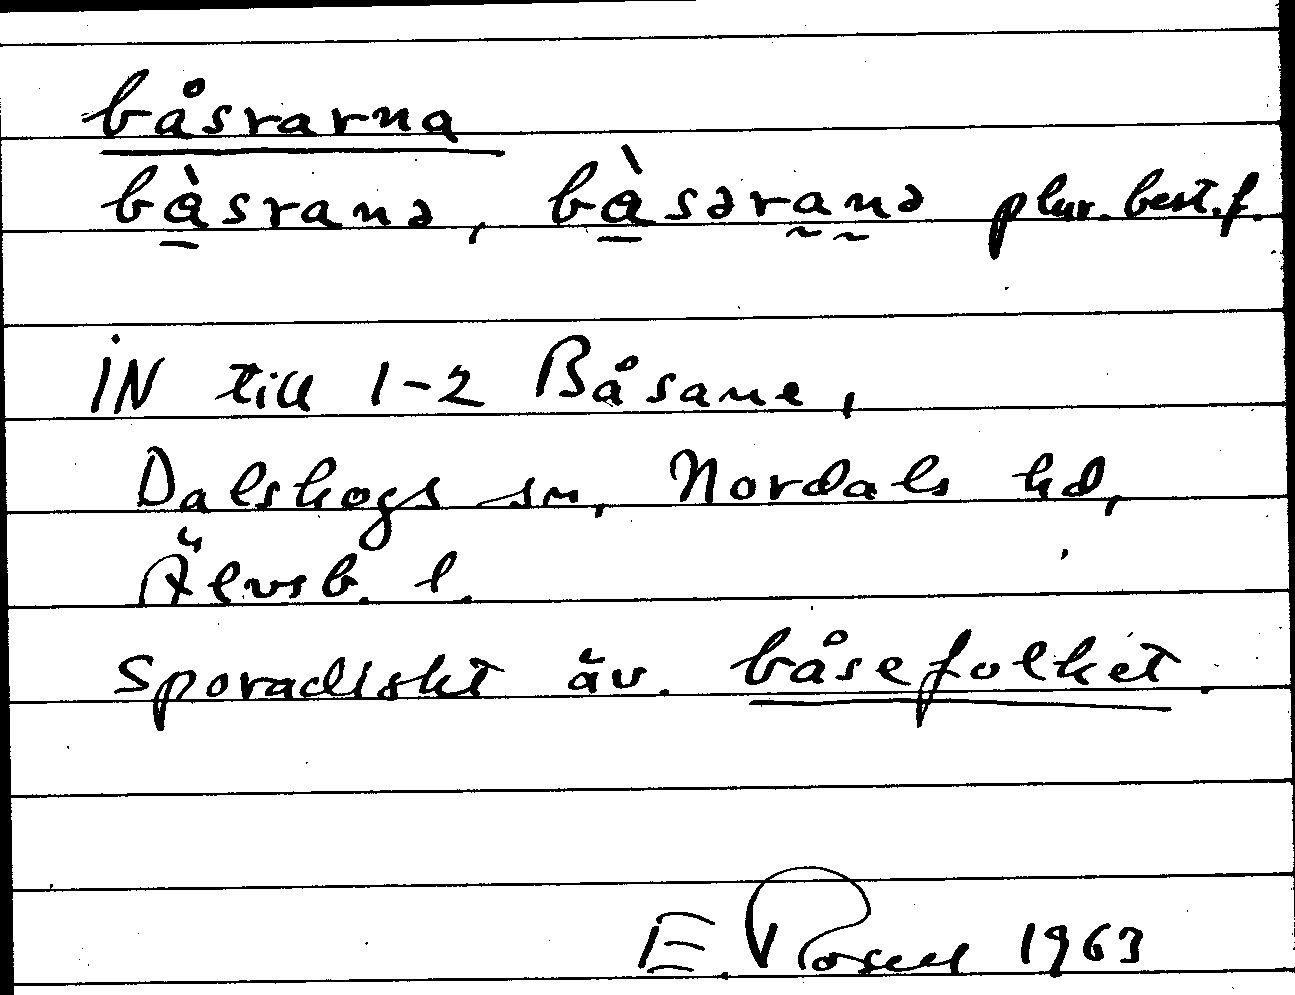 båsrarna
bàsranə, bàsəranə plur. best. f.
IN till 1-2 Båsane,
Dalskogs sn, Nordals hd,
Älvsb. l.
Sporadiskt äv. båsefolket.
E. Rosell 1963